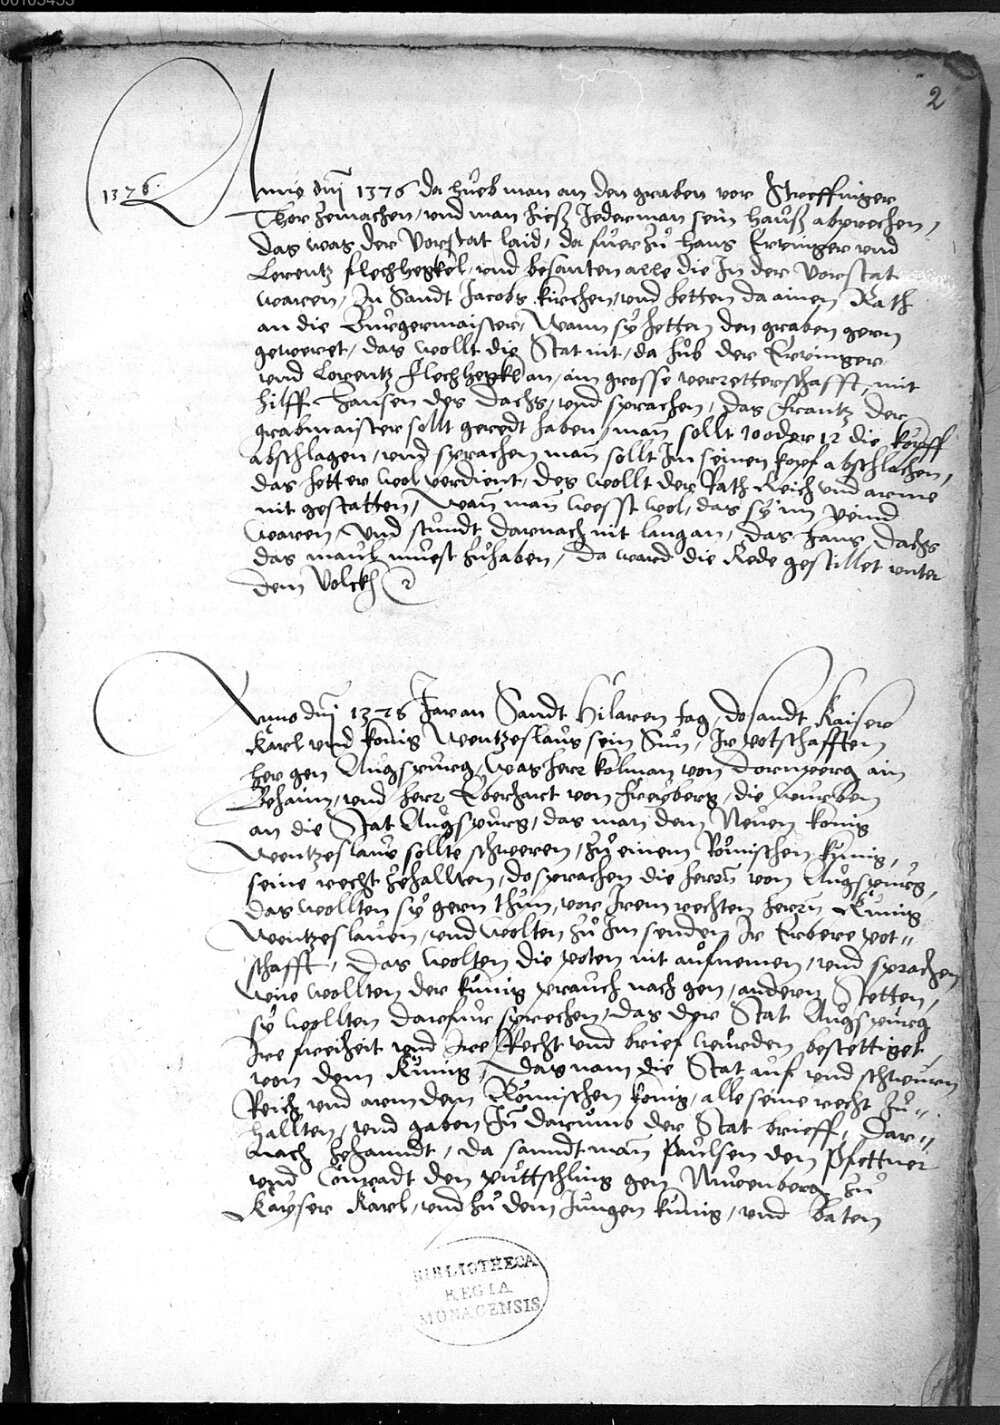 00105453
2
1376.
Anno dni 1376 da hueb man an den graben vor Streffinger
Thor zemachen, und man hiesz Jederman sein hausz abprechen,
das was der Vorstat laid, da fuer zů Hans Erringer und
Lorentz flechhegkel, und besanten alle die In der Vorstat
waren, zu Sandt Jacobs kirchen, und hetten da ainen Rath
an die Burgermaister, Wann sy hetten den graben gern
geweret, das wollt die Stat nit, da hůb der Erringer
und Lorentz flechhegkel an, ain grosse verretterschafft, mit
hilff Hansen des Dachs, und sprachen, das Frantz der
grabmaister sollt geredt haben, man sollt 10 oder 12 die köpff
abschlagen, und sprachen man sollt Im seinen kopf abschlachen,
das hetter wol verdient, des wollt der Rath Reich und arme
nit gestatten, Wan man wesst wol, das sy im veind
waren, Und stundt darnach nit lang an, das Hans Dachs
das maul muest zuhaben, da ward die Rede gestillet unter
dem Volckh
Anno dni 1376 Jar an Sandt Hilaren tag, do sandt Kaiser
Karl und konig Wentzeslaus sein Sun, Ir potschafften
her gen Augspurg, was herr Kolman von Dornperg ain
Behaim, und herr Eberhart von Freyberg, die wurben
an die Stat Augspurg, das man dem Neuen konig
Wentzeslaus sollte schweeren, zů einem Römischen kunig,
seine recht zehallten, do sprachen die herrn von Augspurg,
das wollten sy gern thun, vor Irem rechten herrn Kunig
Wentzeslauen, und wolten zů Im senden Ir Erbere pot„
schafft, Das wolten die poten nit aufnemen, und sprachen
Wie wollten der kunig prauch nach gen, andern Stetten,
sy wollten darfur sprechen, das der Stat Augspurg
Ire freiheit und Ire Recht und brief wurden bestettiget
von dem Kunig, Das nam die Stat auf und schwurn
Reich und arm dem Römischen konig, alle seine recht zu„
hallten, und gaben In darumb der Stat brieff, Dar„
nach zehanndt, da sanndt man Paulsen den Pfettner
und Conradt den puttschling gen Nurenberg zů
Kayser Karl, und zu dem Jungen kunig, und baten
BIBLIOTHECA
REGIA
MONACENSIS